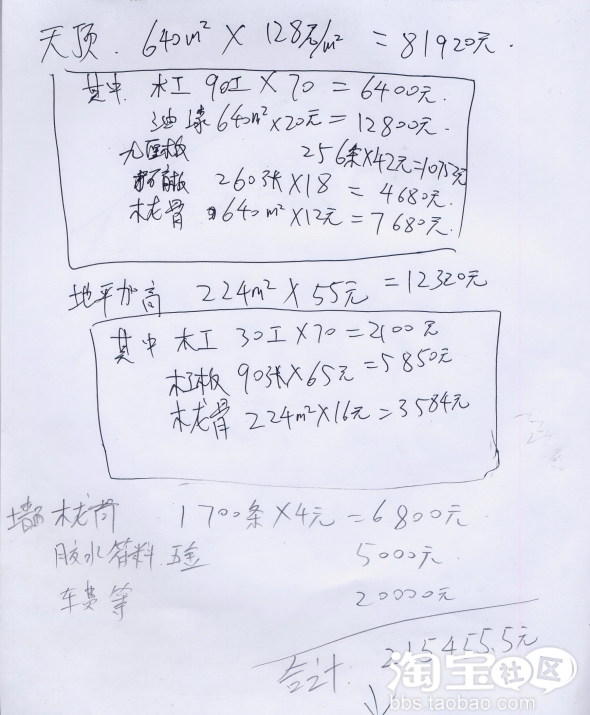 天顶. 640m² × 128元/m² = 81920元.
其中. 木工 90工 × 70 = 6400元.
油漆 640m² × 20元 = 12800元.
九厘板 256条 × 42元 = 10753元
石膏板 260张 × 18 = 4680元.
木龙骨 640m² × 12元 = 7680元.
地平加高 224m² × 55元 = 12320元
其中 木工 30工 × 70 = 2100元
木工板 90张 × 65元 = 5850元
木龙骨 224m² × 16元 = 3584元
墙面 木龙骨 1700条 × 4元 = 6800元.
胶水 五金 5000元.
车费等 20000元
合计: 215455.5元
淘宝社区
bbs.taobao.com